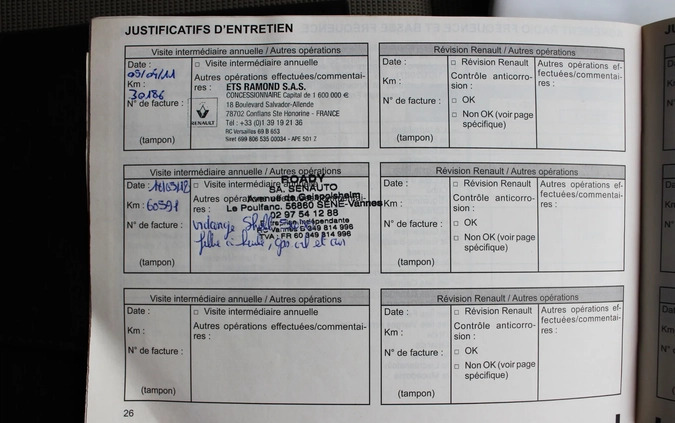 JUSTIFICATIFS D'ENTRETIEN
Visite intermédiaire annuelle / Autres opérations
Date :
05/04/11
Km :
30186
N° de facture :
(tampon)
□ Visite intermédiaire annuelle
Autres opérations effectuées/commentai-
res :
ETS RAMOND S.A.S.
CONCESSIONNAIRE Capital de 1 600 000 €
18 Boulevard Salvador-Allende
78702 Conflans Ste Honorine - FRANCE
Tél : +33 (0)1 39 19 21 36
RC Versailles 69 B 653
Siret 699 806 535 00034 - APE 501 Z
RENAULT
Révision Renault / Autres opérations
Date :
Km :
N° de facture :
(tampon)
□ Révision Renault
Contrôle anticorro-
sion :
□ OK
□ Non OK (voir page
spécifique)
Autres opérations ef-
fectuées/commentai-
res :
Visite intermédiaire annuelle / Autres opérations
Date :
Km : 60591
N° de facture :
(tampon)
□ Visite intermédiaire annuelle
Autres opérations
res :
ROADY
SA. SENAUTO
Avenue de Geispolsheim
Le Poulfanc. 56860 SENE-Vannes
02 97 54 12 88
Indépendante
Vannes B 349 814 996
TVA : FR 60 349 814 996
vidange Shell
filtre à huile, gas oil et air
Révision Renault / Autres opérations
Date :
Km :
N° de facture :
(tampon)
□ Révision Renault
Contrôle anticorro-
sion :
□ OK
□ Non OK (voir page
spécifique)
Autres opérations ef-
fectuées/commentai-
res :
Visite intermédiaire annuelle / Autres opérations
Date :
Km :
N° de facture :
(tampon)
□ Visite intermédiaire annuelle
Autres opérations effectuées/commentai-
res :
Révision Renault / Autres opérations
Date :
Km :
N° de facture :
(tampon)
□ Révision Renault
Contrôle anticorro-
sion :
□ OK
□ Non OK (voir page
spécifique)
Autres opérations ef-
fectuées/commentai-
res :
26